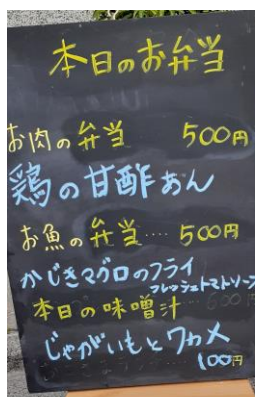 本日のお弁当
お肉の弁当 500円
鶏の甘酢あん
お魚の弁当…. 500円
かじきマグロのフライ
フレッシュトマトソース
本日の味噌汁
じゃがいもとワカメ
100円